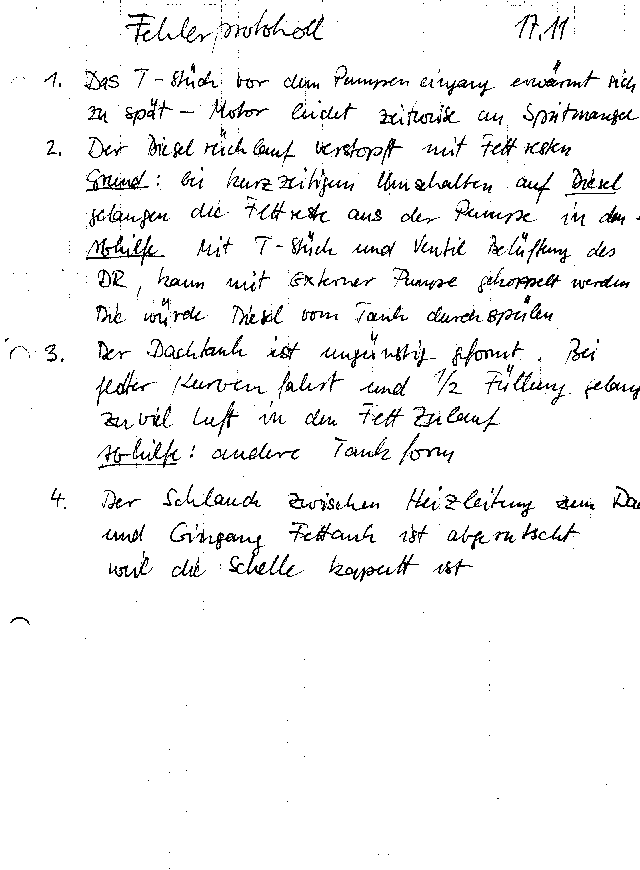 Fehlerprotokoll 17.11
1. Das T-Stück vor dem Pumpeneingang erwärmt sich
zu spät – Motor leidet zeitweise an Spritmangel
2. Der Dieselrücklauf verstopft mit Fettresten
Grund: bei kurzzeitigem Umschalten auf Diesel
gelangen die Fettreste aus der Pumpe in den
Abhilfe Mit T-Stück und Ventil Belüftung des
DR, kann mit Externer Pumpe gekoppelt werden
Die würde Diesel vom Tank durchspülen
3. Der Dachtank ist ungünstig geformt. Bei
jeder Kurvenfahrt und 1/2 Füllung gelang
zuviel Luft in den Fett Zulauf
Abhilfe: andere Tankform
4. Der Schlauch zwischen Heizleitung zum Da
und Eingang Fettank ist abgerutscht
weil die Schelle kaputt ist